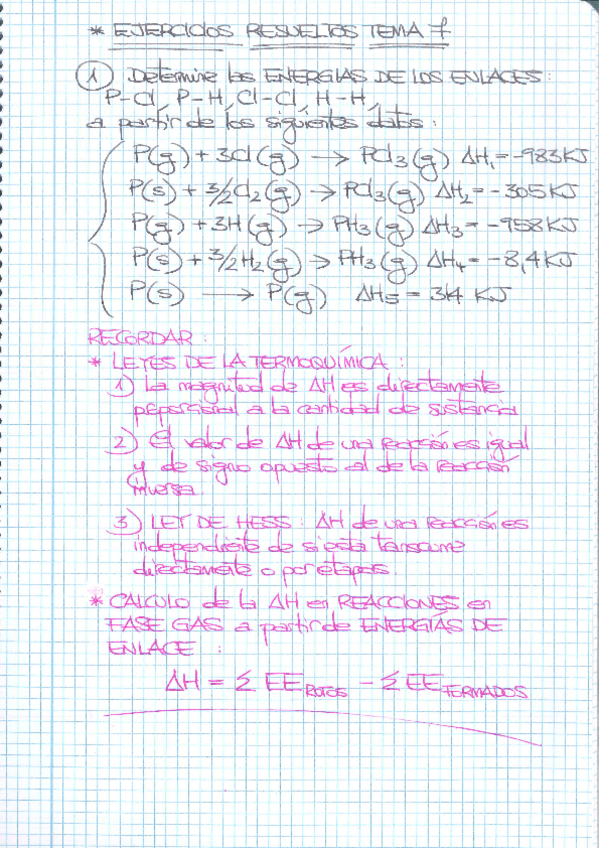 * EJERCICIOS RESUELTOS TEMA 7
1) Determine las ENERGIAS DE LOS ENLACES:
P-Cl, P-H, Cl-Cl, H-H,
a partir de los siguientes datos:
P(g) + 3Cl(g) → PCl3(g) ΔH1 = -983KJ
P(s) + 3/2Cl2(g) → PCl3(g) ΔH2 = -305KJ
P(g) + 3H(g) → PH3(g) ΔH3 = -958KJ
P(s) + 3/2H2(g) → PH3(g) ΔH4 = -8,4KJ
P(s) → P(g) ΔH5 = 314 KJ
RECORDAR:
* LEYES DE LA TERMOQUÍMICA:
1) La magnitud de ΔH es directamente
poporcional a la cantidad de sustancia
2) El valor de ΔH de una reacción es igual
y de signo opuesto al de la reacción
inversa.
3) LEY DE HESS: ΔH de una reacción es
independiente de si esta transcurre
directamente o por etapas.
* CALCULO de la ΔH en REACCIONES en
FASE GAS a partir de ENERGIAS DE
ENLACE:
ΔH = Σ EE ROTOS - Σ EE FORMADOS